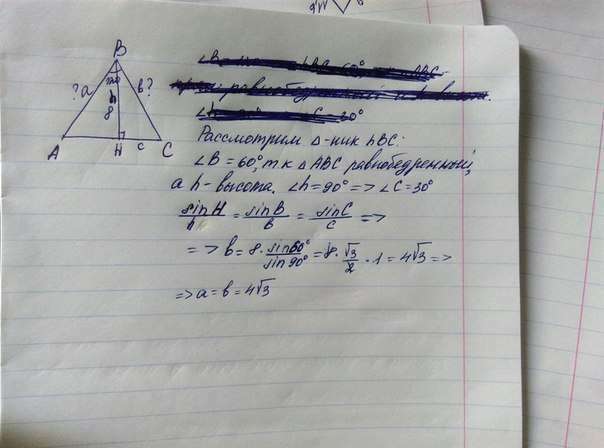 B
? a
120
h
8
b?
A
H
c
C
Рассмотрим Δ-ник hBC:
∠B = 60°, т.к Δ ABC равнобедренный,
а h - высота. ∠h = 90° => ∠C = 30°
sin H / h = sin B / b = sin C / c =>
=> b = 8 · sin 60° / sin 90° = 8 · √3 / 2 · 1 = 4√3 =>
=> a = b = 4√3